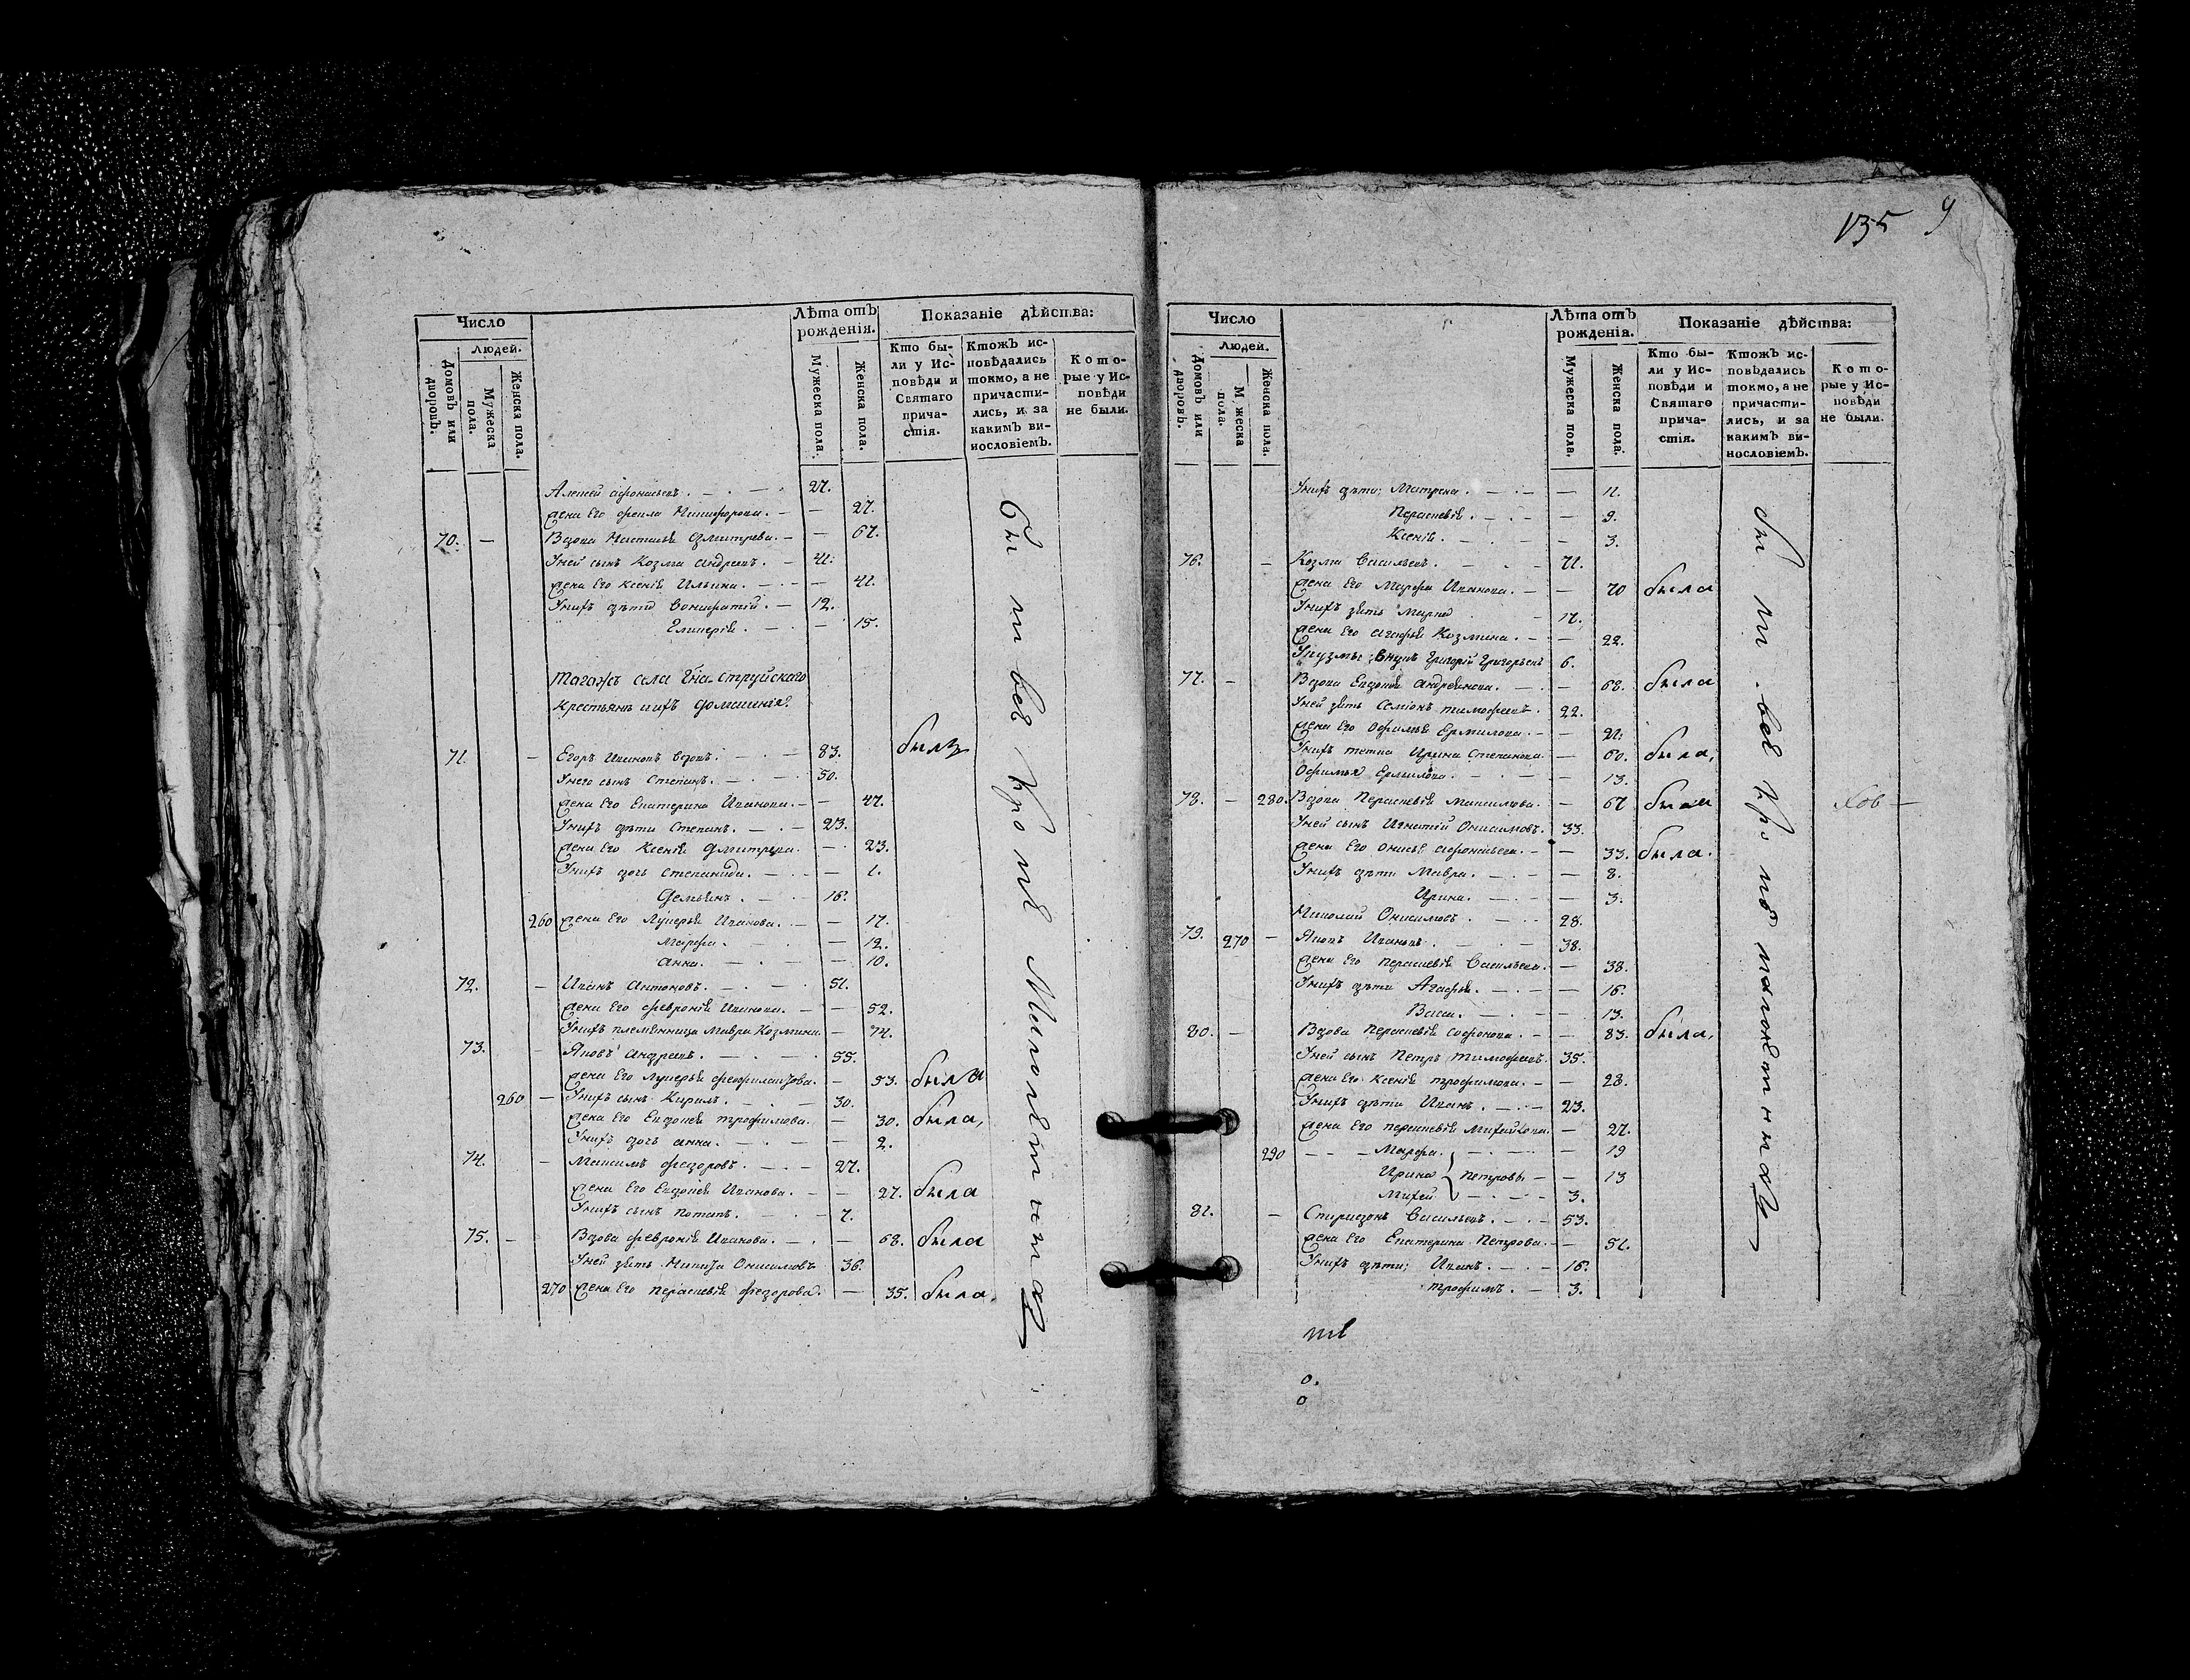 135 9
Число
Людей.
Домовъ или дворовъ.
Мужеска пола.
Женска пола.
Лѣта отъ рожденія.
Мужеска пола.
Женска пола.
Показаніе дѣйства:
Кто были у Исповѣди и Святаго причастія.
Ктожъ исповѣдались токмо, а не причастились, и за какимъ винословіемъ.
Которые у Исповѣди не были.
Алексей Афонасьевъ. 27.
жена Его Фекла Никифорова. 27.
70. Вдова Настасья Дмитрева. 67.
Уней сынъ Козма Андреевъ. 41.
жена Его Ксенія Ильина. 41.
Унихъ дѣти Вонифатій. 12.
Гликерія. 15.
Тогожъ села Гна Струйскаго
Крестьяне ихъ домашнія.
71. Егоръ Ивановъ вдовъ. 83. былъ
Унего сынъ Степанъ. 50.
жена Его Екатерина Иванова. 47.
Унихъ дѣти Степанъ. 23.
жена Его Ксенія Дмитрева. 23.
Унихъ дочь Степанида. 1.
Демьянъ. 18.
260 жена Его Лукерья Иванова. 17.
Марфа. 12.
Анна. 10.
72. Иванъ Антоновъ. 51.
жена Его Февронія Иванова. 52.
Унихъ племянница Мавра Козмина. 14.
73. Яковъ Андреевъ. 55.
жена Его Лукерья Феофилактова. 53. была
260 Унихъ сынъ Кирилъ. 30.
жена Его Евдокея Трофимова. 30. была,
Унихъ дочь Анна. 2.
74. Максимъ Федоровъ. 27.
жена Его Евдокея Иванова. 27. была
Унихъ сынъ Потапъ. 7.
75. Вдова Февронія Иванова. 68. была
Уней зять Никита Онисимовъ 36.
270 жена Его Парасковія Федорова. 35. была
Были всѣ кромѣ Малолѣтныхъ
Число
Людей.
Домовъ или дворовъ.
Мужеска пола.
Женска пола.
Лѣта отъ рожденія.
Мужеска пола.
Женска пола.
Показаніе дѣйства:
Кто были у Исповѣди и Святаго причастія.
Ктожъ исповѣдались токмо, а не причастились, и за какимъ винословіемъ.
Которые у Исповѣди не были.
Унихъ дѣти; Матрена. 11.
Парасковія. 9.
Ксенія. 3.
76. Козма Васильевъ. 71.
жена Его Марфа Иванова. 70 была
Унихъ зять Марко
жена Его Агафья Козмина. 22.
Укузмы внукъ Григорій Григорьевъ 6.
77. Вдова Евдокія Андреянова. 68. была
Уней зять Семіонъ Тимофеевъ. 22.
жена Его Офимья Ермилова. 21.
Унихъ тетка Ирина Степанова. 60. была,
Офимья Ермилова. 13.
78. 280. Вдова Парасковія Максимова. 67 была
Уней сынъ Игнатій Онисимовъ. 33.
жена Его Онисья Афонасьева. 33. была.
Унихъ дѣти Мавра. 8.
Ирина. 3.
Николай Онисимовъ. 28.
79. 270 Яковъ Ивановъ. 38.
жена Его Парасковія Васильева. 38.
Унихъ дѣти Агафья. 16.
Васа. 13.
80. Вдова Парасковія Софонова. 83. была,
Уней сынъ Петръ Тимофеевъ. 35.
жена Его Ксенія Трофимова. 28.
Унихъ дѣти Иванъ. 23.
жена Его Парасковія 27.
290 Марфа. 19
Ирина Петровы 13
Михей 3.
81. Спиридонъ Васильевъ. 53.
жена Его Екатерина Петрова. 51.
Унихъ дѣти; Иванъ. 16.
Трофимъ. 3.
Были всѣ кромѣ малолѣтныхъ